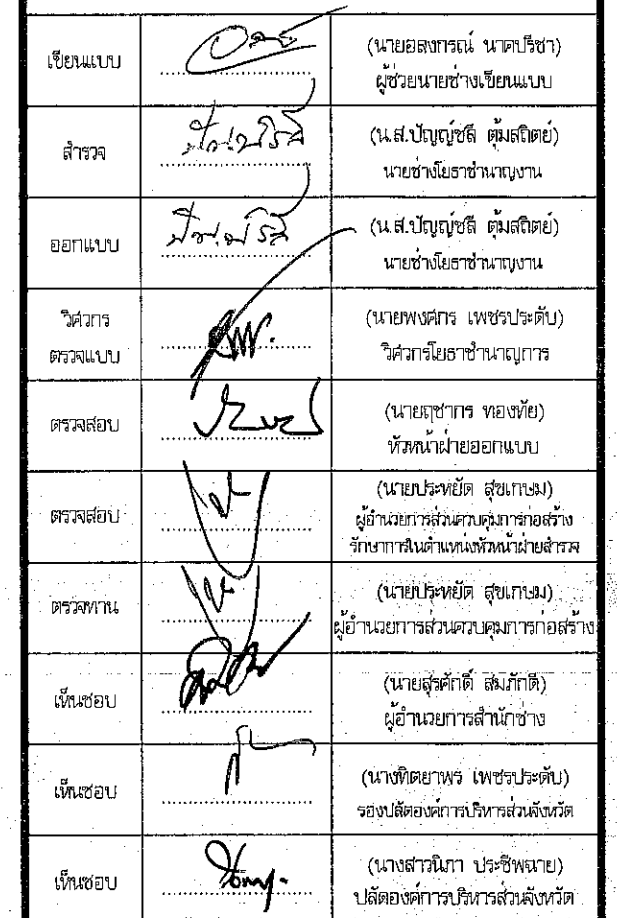 เขียนแบบ
(นายอลงกรณ์ นาคปรีชา)
ผู้ช่วยนายช่างเขียนแบบ
สำรวจ
(น.ส.ปัญญ์ชลี ตุ้มสถิตย์)
นายช่างโยธาชำนาญงาน
ออกแบบ
(น.ส.ปัญญ์ชลี ตุ้มสถิตย์)
นายช่างโยธาชำนาญงาน
วิศวกร
ตรวจแบบ
(นายพงศกร เพชรประดับ)
วิศวกรโยธาชำนาญการ
ตรวจสอบ
(นายฤชากร ทองทัย)
หัวหน้าฝ่ายออกแบบ
ตรวจสอบ
(นายประหยัด สุขเกษม)
ผู้อำนวยการส่วนควบคุมการก่อสร้าง
รักษาการในตำแหน่งหัวหน้าฝ่ายสำรวจ
ตรวจทาน
(นายประหยัด สุขเกษม)
ผู้อำนวยการส่วนควบคุมการก่อสร้าง
เห็นชอบ
(นายสุรศักดิ์ สมภักดี)
ผู้อำนวยการสำนักช่าง
เห็นชอบ
(นางทิตยาพร เพชรประดับ)
รองปลัดองค์การบริหารส่วนจังหวัด
เห็นชอบ
(นางสาวนิภา ประชีพฉาย)
ปลัดองค์การบริหารส่วนจังหวัด